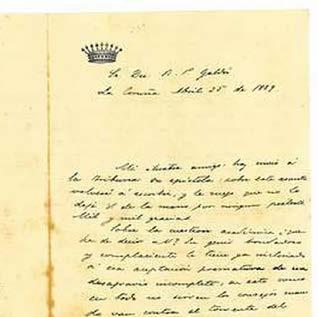 Sr. Dn. B. P. Galdós
La Coruña Abril 25 de 1889.
Mi ilustre amigo: hoy envío á
la Tribuna su epístola: sobre este asunto
volveré á escribir, y le ruego que no lo
deje V. de la mano por ningún pretexto
Mil y mil gracias
Sobre la cuestión académica, ¿qué
he de decir a V.? Su genio bondadoso
y complaciente le tiene ya inclinado
á esa aceptación prematura de un
desagravio incompleto; en este
no sirven los consejos
van contra el torrente del